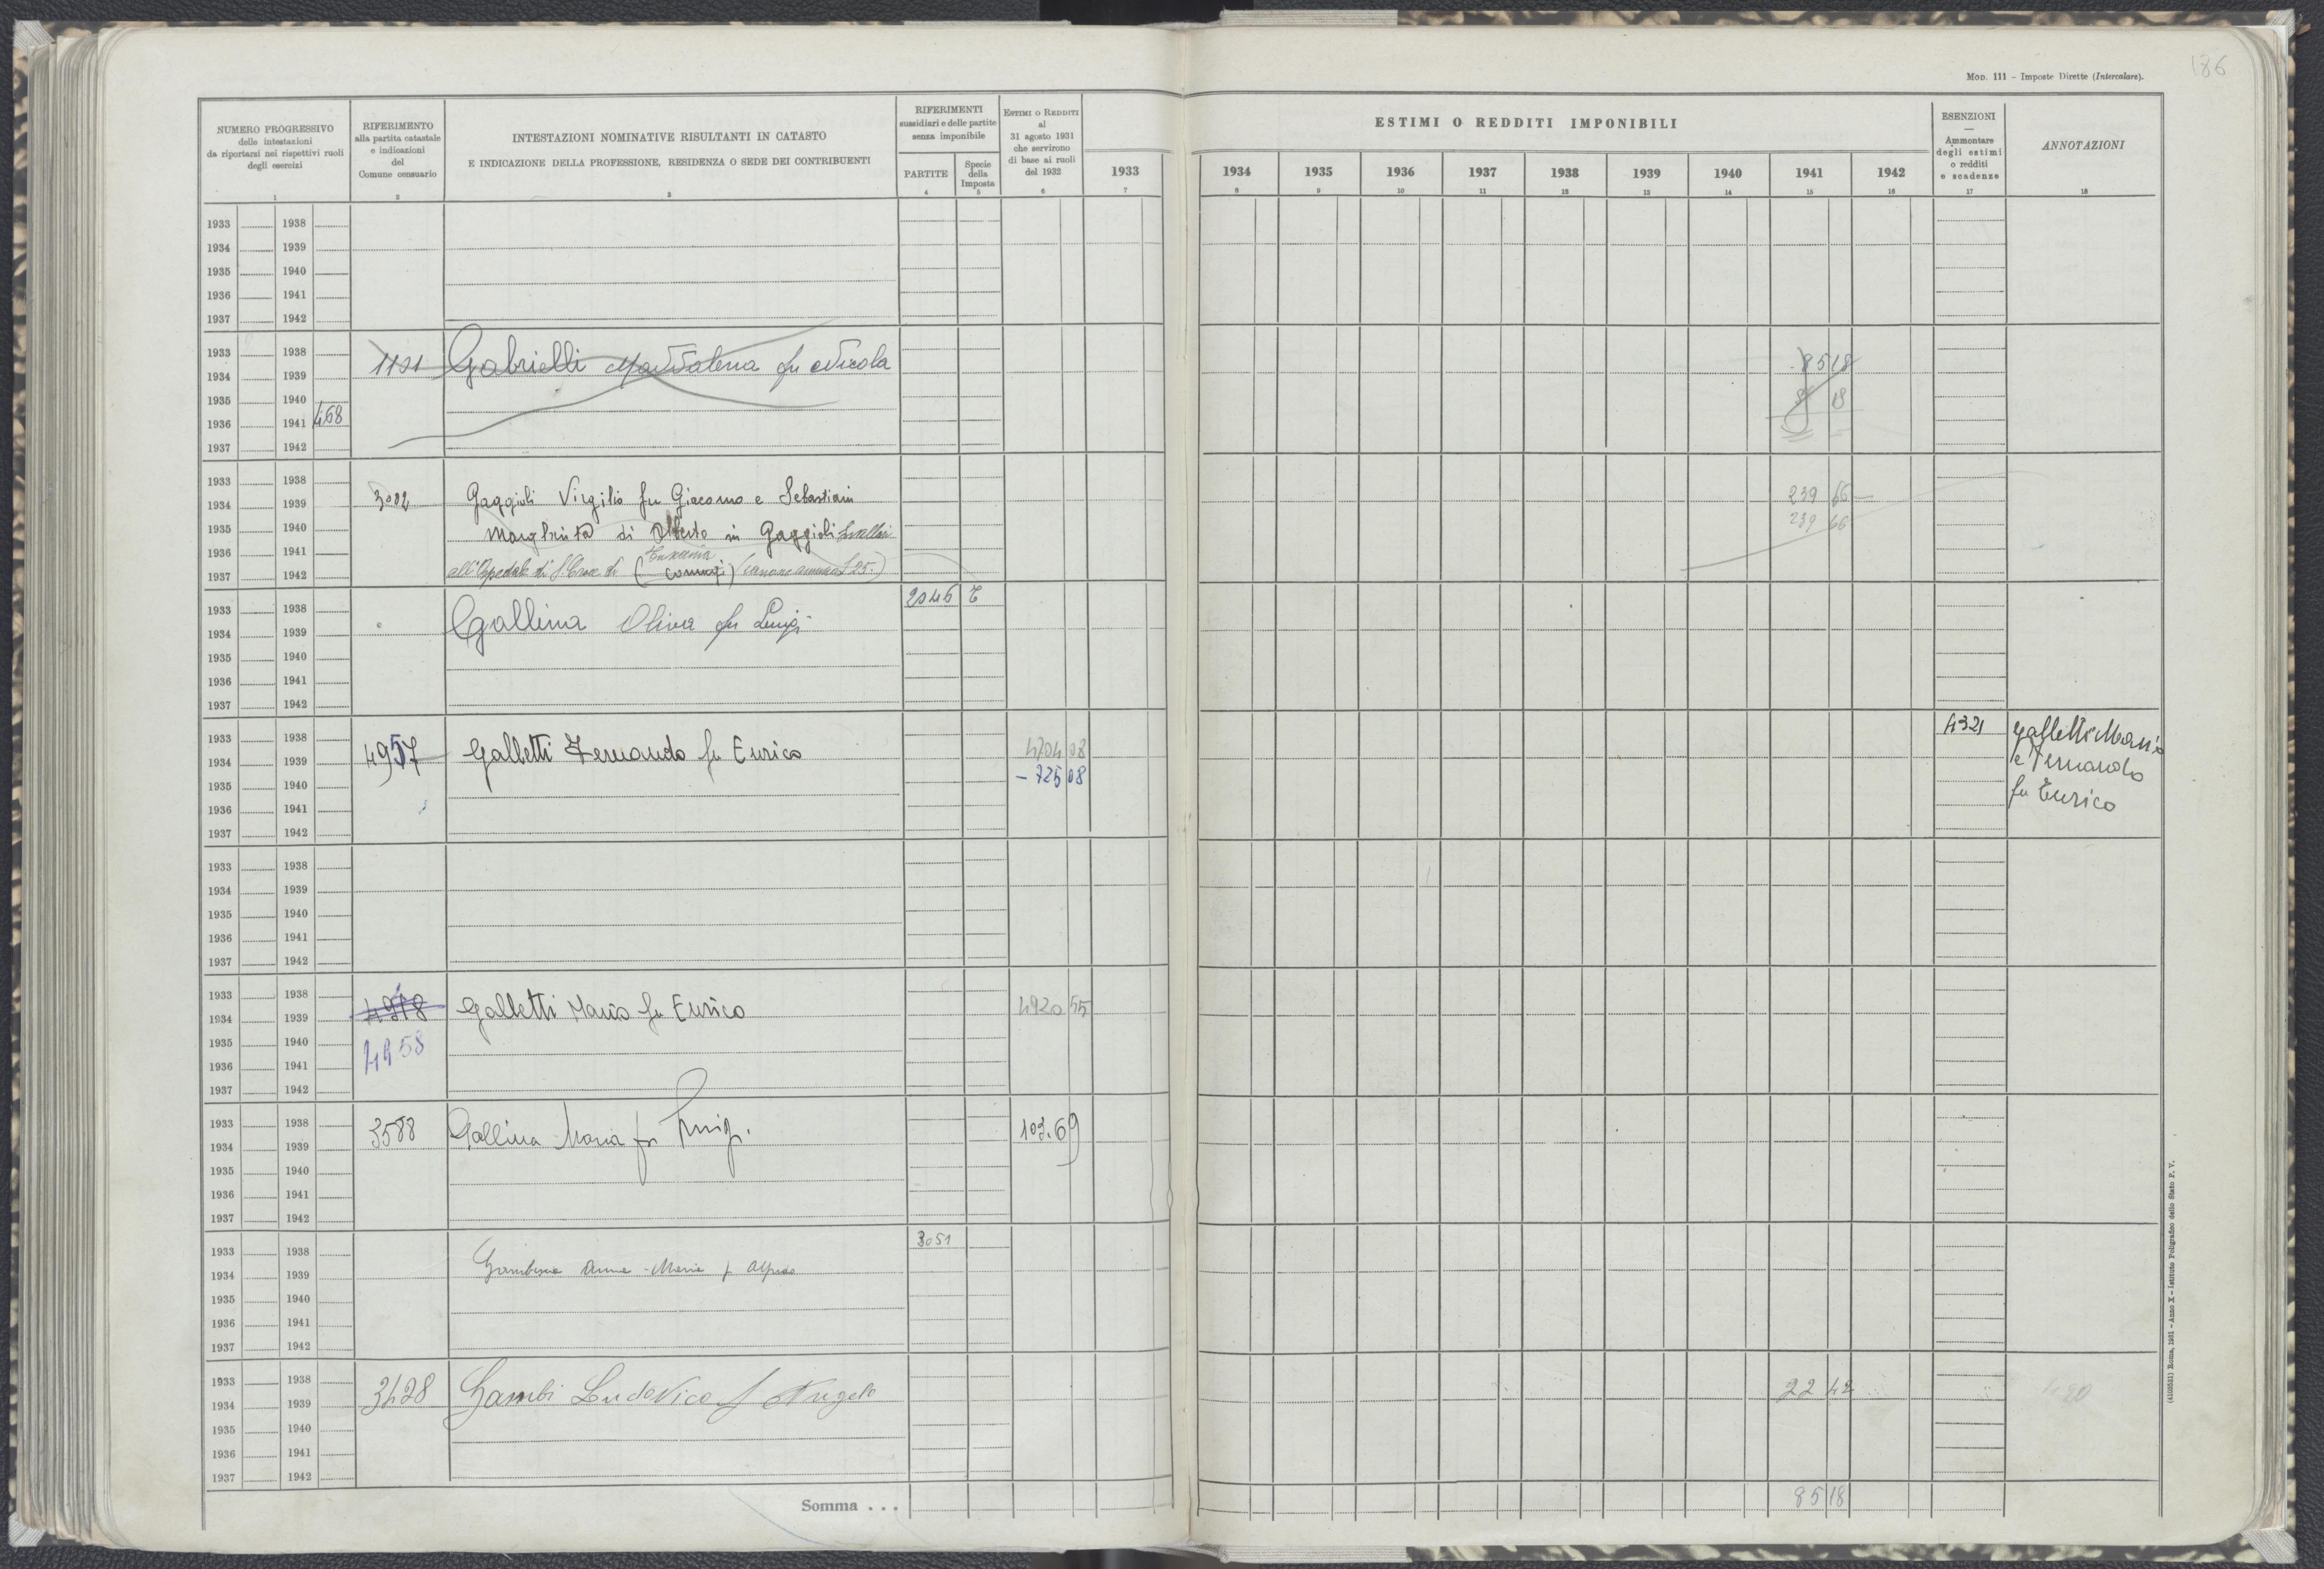 186
MOD. 111 - Imposte Dirette (Intercalare).
NUMERO PROGRESSIVO
delle intestazioni
da riportarsi nei rispettivi ruoli
degli esercizi
1
RIFERIMENTO
alla partita catastale
e indicazioni
del
Comune censuario
2
INTESTAZIONI NOMINATIVE RISULTANTI IN CATASTO
E INDICAZIONE DELLA PROFESSIONE, RESIDENZA O SEDE DEI CONTRIBUENTI
3
RIFERIMENTI
sussidiari e delle partite
senza imponibile
PARTITE
4
Specie
della
Imposta
5
ESTIMI O REDDITI
al
31 agosto 1931
che servirono
di base ai ruoli
del 1932
6
1933
7
ESTIMI O REDDITI IMPONIBILI
1934 1935 1936 1937 1938 1939 1940 1941 1942
8 9 10 11 12 13 14 15 16
ESENZIONI
—
Ammontare
degli estimi
o redditi
e scadenze
17
ANNOTAZIONI
18
1933 1938
1934 1939
1935 1940
1936 1941
1937 1942
1933 1938
1934 1939 1131 Gabrielli Maddalena fu Nicola 85 18
1935 1940 18
1936 1941 468
1937 1942
1933 1938
1934 1939 3082 Gaggioli Virgilio fu Giacomo e Sebastiani 239 66
1935 1940 Margherita di Alberto in Gaggioli livellari 239 66
1936 1941
1937 1942 all'Ospedale di S. Croce di (canone annuo £ 25.)
1933 1938 2046
1934 1939 Gallina Oliva fu Luigi
1935 1940
1936 1941
1937 1942
1933 1938 4321 Galletti Mario
1934 1939 4957 Galletti Fernando fu Enrico 4704 08 e Fernando
1935 1940 - 725 08 fu Enrico
1936 1941
1937 1942
1933 1938
1934 1939
1935 1940
1936 1941
1937 1942
1933 1938
1934 1939 Galletti Mario fu Enrico 4920 55
1935 1940 4958
1936 1941
1937 1942
1933 1938 3588 Gallina Maria fu Luigi. 103.69
1934 1939
1935 1940
1936 1941
1937 1942
1933 1938 3051
1934 1939 Anna-Maria f Alfredo
1935 1940
1936 1941
1937 1942
1933 1938
1934 1939 3428 Gambi Ludovico f Angelo 22 42
1935 1940
1936 1941
1937 1942
Somma . . . 85 18
(4103531) Roma, 1931 - Anno X - Istituto Poligrafico dello Stato P. V.